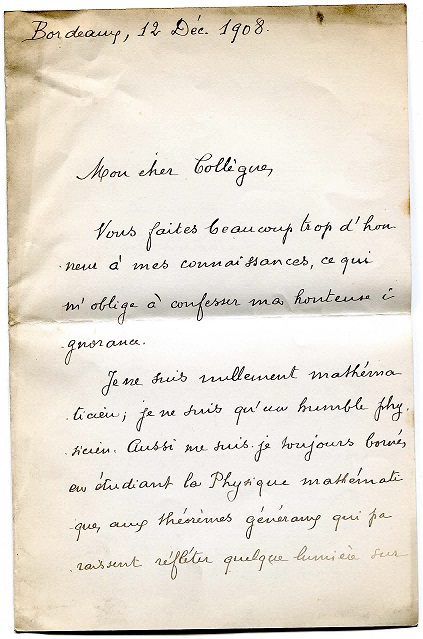 Bordeaux, 12 Déc. 1908.
Mon cher Collègue,
Vous faites beaucoup trop d'hon
neur à mes connaissances, ce qui
m'oblige à confesser ma honteuse i
gnorance.
Je ne suis nullement mathéma
ticien; je ne suis qu'un humble phy.
sicien. Aussi me suis-je toujours borné,
en étudiant la Physique mathémati
que, aux théorèmes généraux qui pa
raissent réfléter quelque lumière sur